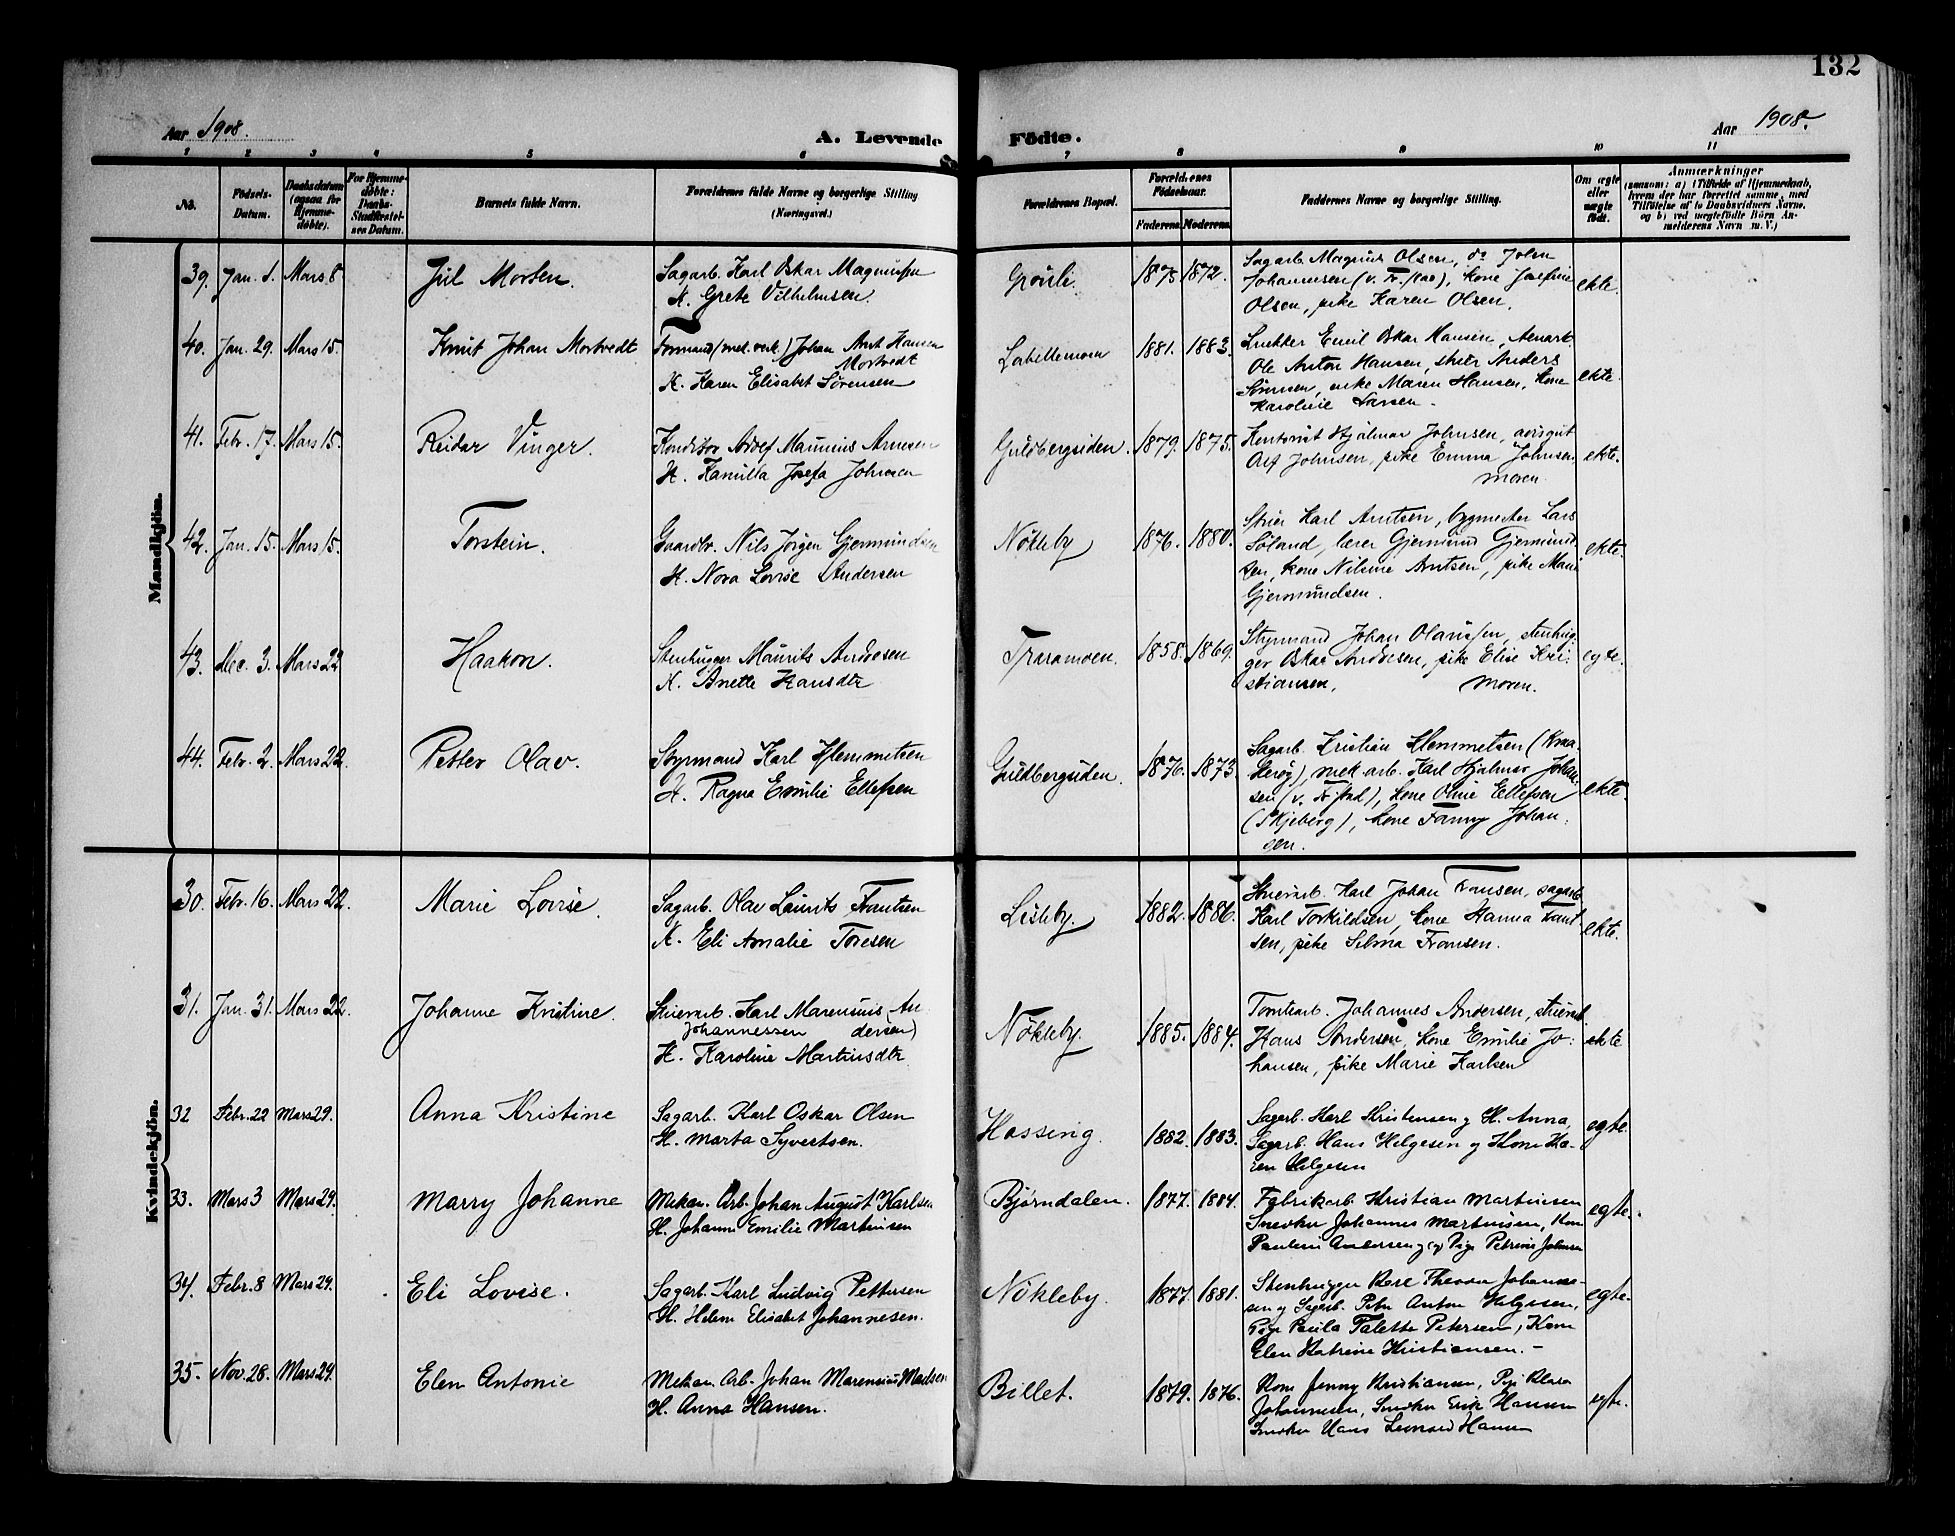 132
Aar 1908.
A. Levende Födte.
Aar 1908.
1 2 3 4 5 6 7 8 9 10 11
No.
Födsels-Datum.
Daabsdatum (ogsaa for Hjemme-döbte).
For Hjemme-döbte: Daabs-Stadfæstel-ses Datum.
Barnets fulde Navn.
Forældrenes fulde Navne og borgerlige Stilling
(Næringsvei.)
Forældrenes Bopæl.
Forældrenes Födselsaar.
Faderens. Moderens.
Faddernes Navne og borgerlige Stilling.
Om ægte eller uægte födt.
Anmærkninger
(saasom: a) i Tilfælde af Hjemmedaab,
hvem der har forrettet samme, med
Tilföielse af to Daabsvidners Navne,
og b) ved uægtefödte Börn An-
melderens Navn m. V.)
Mandkjön.
39. Jan. 1. Mars 8. Juil Morten.
Sagarb. Karl Oskar Magnussen
H. Grete Vilhelmsen.
1875 1872.
Sagarb. Magnus Olsen, do John
Johannesen (v. Fr.stad), kone Josefine
Olsen, pike Karen Olsen.
ekte.
40. Jan. 29. Mars 15. Knut Johan Mortvedt
Formand (mek. verk.) Johan Arnt Hansen
Mortvedt
H. Karen Elisabet Sørensen
Labillemoen
1881. 1883.
Snekker Emil Oskar Hansen,
Ole Anton Hansen, stuer Anders
Sørensen, enke Maren Hansen, kone
Karoline Larsen.
ekte.
41. Febr. 17. Mars 15. Reidar Vinger.
Konditor Adolf Maurius Arnesen
H. Kamilla Josefa Johnsen
Guldbergsiden.
1879. 1875.
Kontorist Hjalmar Johnsen, avisgut
Alf Johnsen, pike Emma Johnsen,
moren.
ekte.
42. Jan. 15. Mars 15. Torstein.
Gaardbr. Nils Jørgen Gjermundsen
H. Nora Lovise Andersen
Nökleby
1876. 1880.
Stuer Karl Arntsen, bygmester Lars
Søland, lærer Gjermund Gjermund-
sen, kone Nilsine Arntsen, pike Marie
Gjermundsen.
ekte.
43. Dec. 3. Mars 22 Haakon.
Stenhugger Maurits Andresen
H. Anette Hansdtr
Traramoen.
1858. 1869.
Styrmand Johan Olaussen, stenhug-
ger Oskar Andresen, pike Elise Kri-
stiansen, moren.
egte.
44. Febr. 2. Mars 22. Petter Olav.
Styrmand Karl Hlemmetsen
H. Ragna Emilie Ellefsen
Guldbergsiden.
1876. 1873.
Sagarb. Kristian Klemmetsen (Kraa-
kerøy), mek arb. Karl Hjalmar Johan-
sen (v. Fr.stad), kone Oline Ellefsen
(Skjeberg), kone Fanny Johan-
sen.
ekte.
Kvindekjön.
30. Febr. 16. Mars 22. Marie Lovise.
Sagarb. Olav Laurits Frantsen
H. Eli Amalie Toresen
Lisleby.
1882. 1886.
Stuerarb. Karl Johan Fransen, sagarb.
Karl Torkildsen, kone Hanna Frant-
sen, pike Selma Fransen.
ekte.
31. Jan. 31. Mars 22. Johanne Kristine.
Stuerarb. Karl Marenius (An-
Johannessen dersen)
H. Karoline Martinsdtr
Nökleby.
1885. 1884.
Tomtearb. Johannes Andersen, stuerarb.
Hans Andersen, kone Emilie Jo-
hansen, pike Marie Karlsen
ekte
32 Febr. 22 Mars 29. Anna Kristine
Sagarb. Karl Oskar Olsen
H. Marta Syvertsen.
Hassing.
1882. 1883.
Sagarb. Karl Kristensen og H. Anna,
Sagarb. Hans Helgesen og Kone Ka-
ren Helgesen
egte.
33. Mars 3 Mars 29. Marry Johanne
Mekan. Arb. Johan August Karlsen
H. Johanne Emilie Martinsen
Björndalen.
1877. 1884.
Fabrikarb. Kristian Martinsen
Snedker Johannes Martinsen, Kone
Pauline Andersen og Pige Petrine Johnsen
egte.
34. Febr. 8 Mars 29. Eli Lovise.
Sagarb. Karl Ludvig Pettersen
H. Helene Elisabet Johannesen.
Nökleby.
1877. 1881.
Stenhugger Karl Theodor Johannes-
sen og Sagarb. Peter Anton Helgesen,
Pige Paula Talette Petersen, Kone
Elen Katrine Kristiansen.-
egte.
35. Nov. 28. Mars 29. Elen Antonie
Mekan. Arb. Johan Marensius Madsen
H. Anna Hansen.
Billet.
1879. 1876.
Kone Jenny Kristiansen, Pige Klara
Johannesen, Snedker Erik Hansen
Snedker Hans Leonard Hansen
egte.